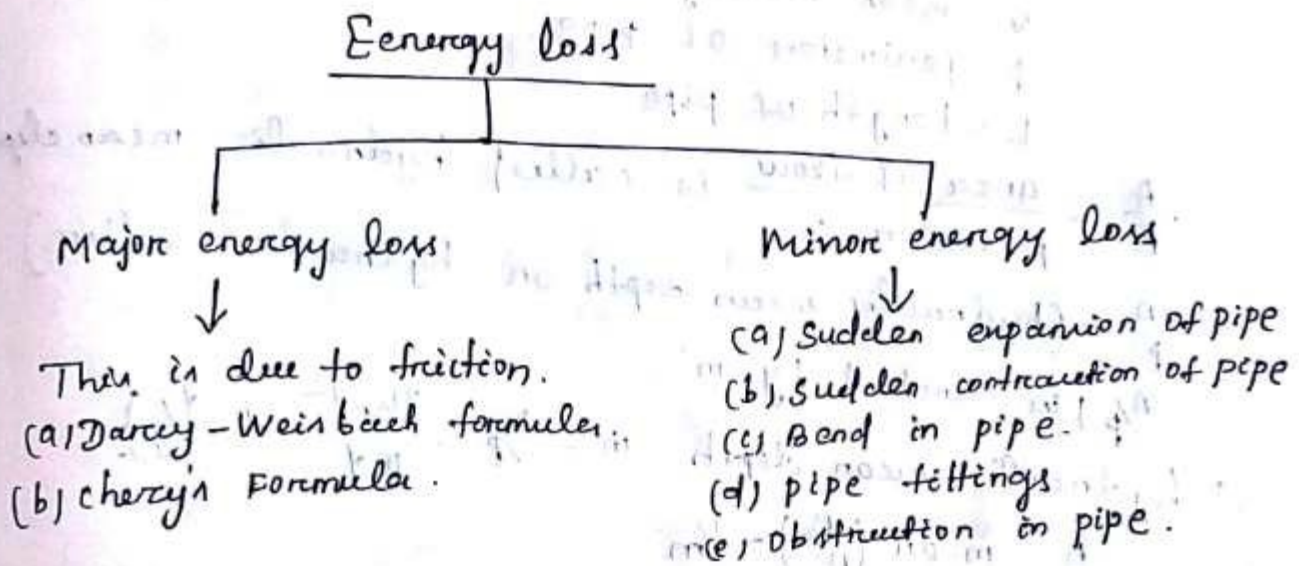 Eenergy loss
Major energy loss
This is due to friction.
(a) Darcy-Weisbach formula.
(b) Chezy's Formula.
Minor energy loss
(a) Sudden expansion of pipe
(b) Sudden contraction of pipe
(c) Bend in pipe.
(d) pipe fittings
(e) Obstruction in pipe.